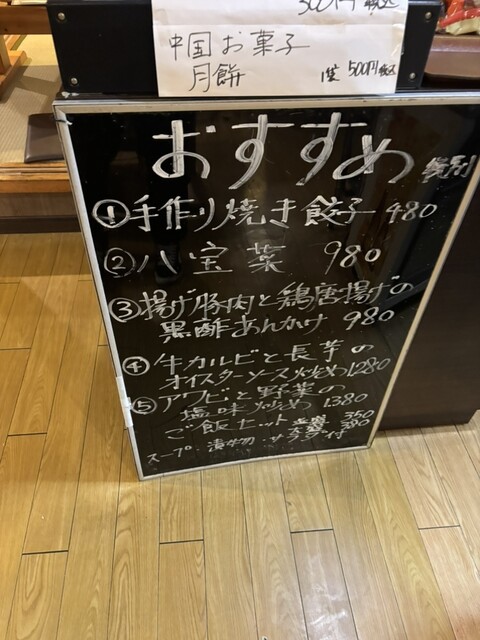 300円 税込
中国お菓子
月餅 1ヶ 500円 税込
おすすめ 税別
①手作り焼き餃子 480
②八宝菜 980
③揚げ豚肉と鶏唐揚げの
黒酢あんかけ 980
④牛カルビと長芋の
オイスターソース炒め 1280
⑤アワビと野菜の
塩味炒め 1380
ご飯セット 350
380
スープ・漬物・サラダ付